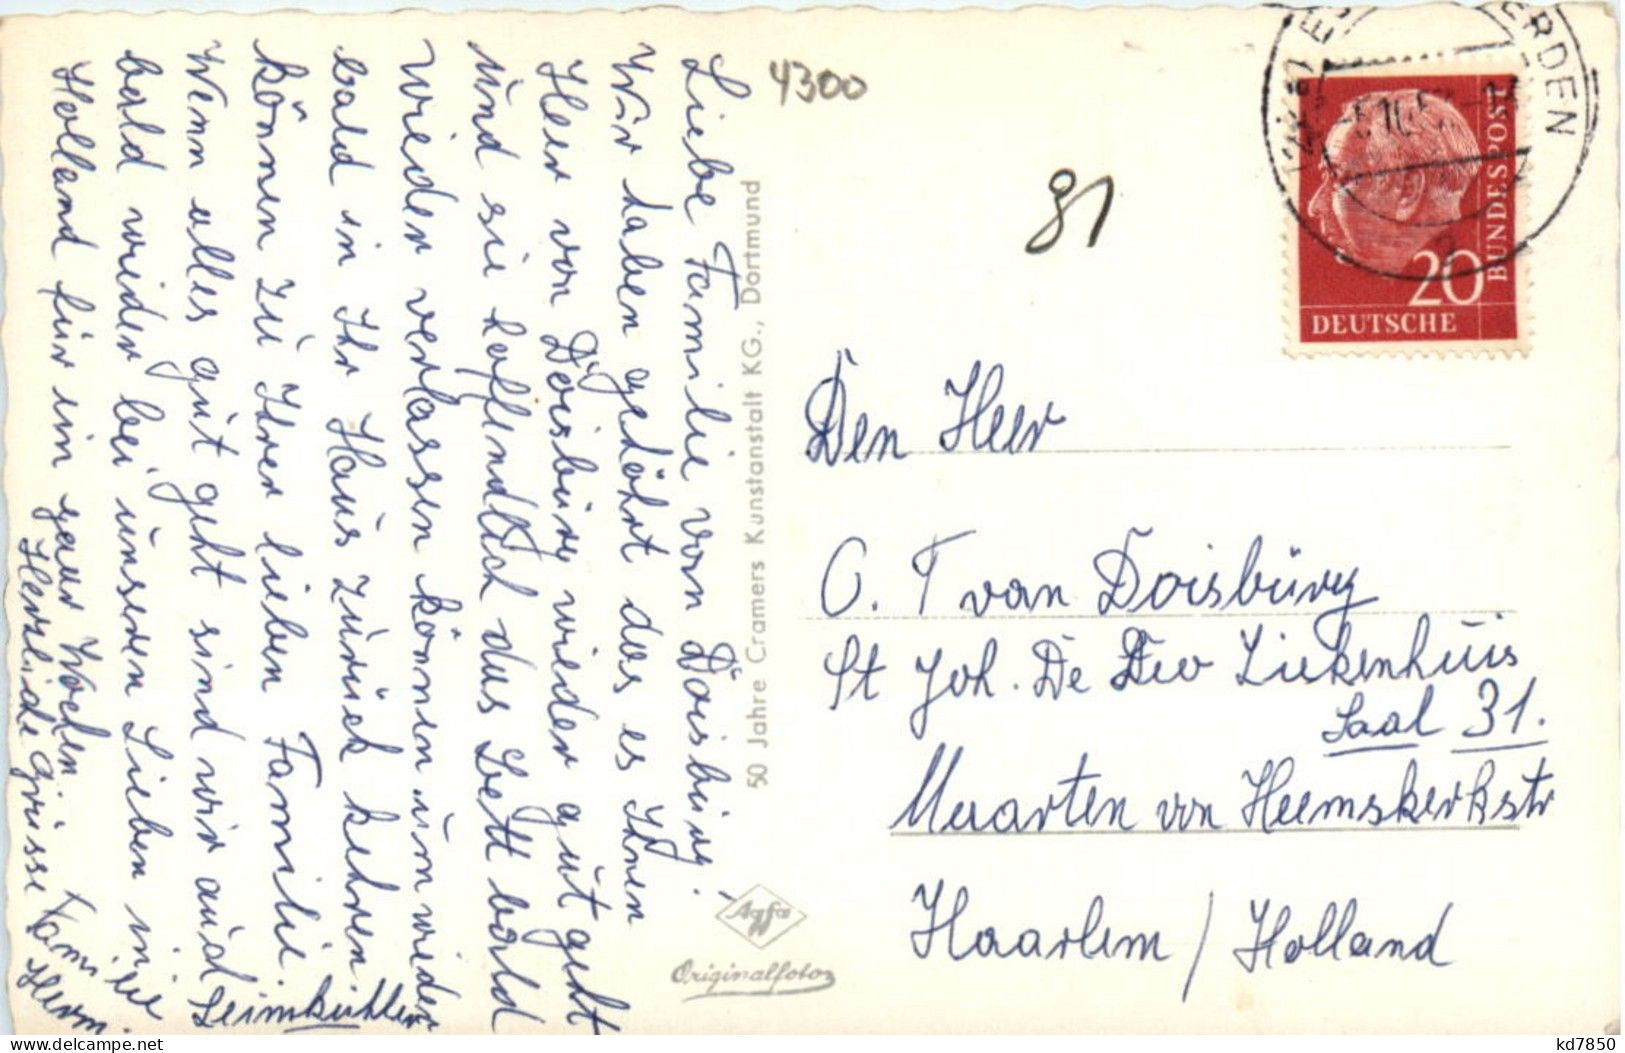 Liebe Familie von Doisbürg!
Wir haben gehört das es Ihnen
Heer von Doisbürg wieder gut geht
und sie hoffendlich das Bett bald
wieder verlassen können um wieder
bald in Ihr Haus zurück kehren
können zu Ihrer lieben Familie.
Wenn alles gut geht sind wir auch
bald wieder bei unseren Lieben in
Holland für ein paar Wochen.
Herzliche grüsse Familie
Herm. Leimkühler
50 Jahre Cramers Kunstanstalt KG., Dortmund
Agfa
Originalfoto
4300
81
ERDEN
20
BUNDESPOST
DEUTSCHE
Den Heer
C. T van Doisbürg
St Joh. De Deo Ziekenhuis
Saal 31.
Maarten van Heemskerkstr
Haarlem / Holland
kd7850